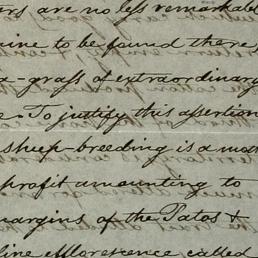 ers are no less remarkable
mine to be found there
a-grass of extraordinary
e. To justify this assertion
sheep-breeding is a mo
profit amounting to
margins of the Patos &
line efflorescence called